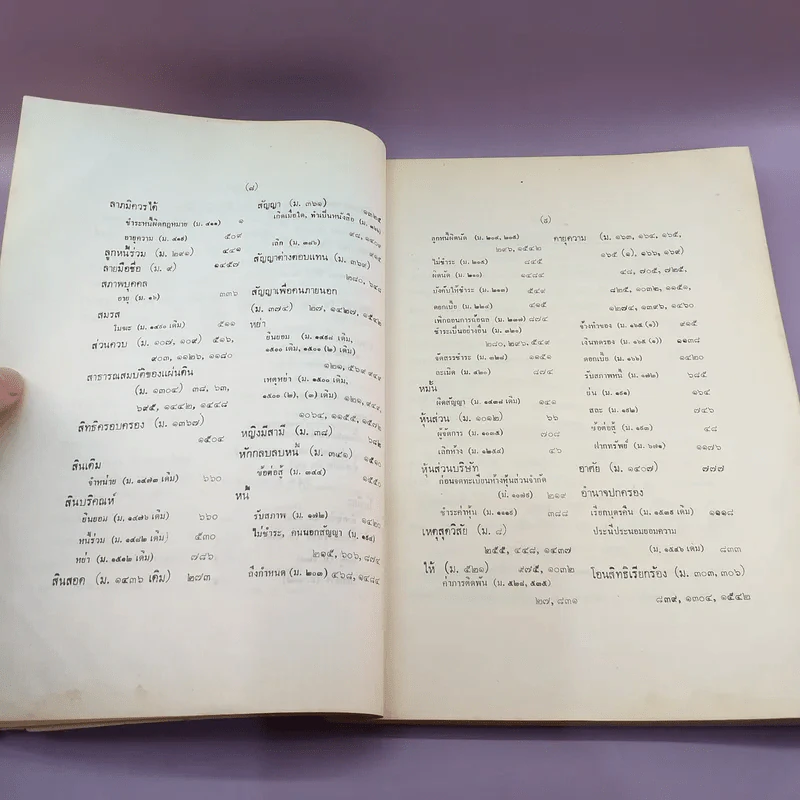 (๘)
ลาภมิควรได้
ชำระหนี้ผิดกฎหมาย (ม. ๔๑๑) ๑
อายุความ (ม. ๔๑๙) ๕๐๙
ลูกหนี้ร่วม (ม. ๒๙๑) ๔๔๑
ลายมือชื่อ (ม. ๙) ๑๔๕๗
สภาพบุคคล
อายุ (ม. ๑๖) ๓๓๖
สมรส
โมฆะ (ม. ๑๔๙๐ เดิม) ๕๑๑
ส่วนควบ (ม. ๑๐๗, ๑๐๙) ๕๑๖,
๙๐๓, ๑๑๒๖, ๑๑๘๐
สาธารณสมบัติของแผ่นดิน
(ม. ๑๓๐๔) ๓๘, ๖๓,
๖๙๕, ๑๔๔๒, ๑๔๔๘
สิทธิครอบครอง (ม. ๑๓๖๗)
๑๕๐๔
สินเดิม
จำหน่าย (ม. ๑๔๗๓ เดิม) ๖๖๐
สินบริคณห์
ยินยอม (ม. ๑๔๗๖ เดิม) ๖๖๐
หนี้ร่วม (ม. ๑๔๘๒ เดิม) ๕๓๐
หย่า (ม. ๑๕๑๒ เดิม) ๗๘๖
สินสอด (ม. ๑๔๓๖ เดิม) ๒๗๓
สัญญา (ม. ๓๖๑) ๑๓๒๕
เกิดเมื่อใด, ทำเป็นหนังสือ
๙๘, ๑๔๐๑
เลิก (ม. ๓๘๖)
สัญญาต่างตอบแทน (ม. ๓๖๙)
๒๘๐, ๖๔๘
สัญญาเพื่อคนภายนอก
(ม. ๓๗๔) ๒๗, ๑๔๒๗, ๑๕๔๒
หย่า
ยินยอม (ม. ๑๔๙๘ เดิม,
๑๕๐๐ เดิม, ๑๕๐๑ (๒) เดิม)
๑๒๑, ๕๖๙
เหตุหย่า (ม. ๑๕๐๐ เดิม,
๑๕๐๐ (๒), (๓) เดิม) ๑๒๑, ๙๔๙,
๑๐๖๔, ๑๑๕๕, ๑๕๗๒
หญิงมีสามี (ม. ๓๘) ๖๘๒
หักกลบลบหนี้ (ม. ๓๔๑) ๑๕๑๐
ข้อต่อสู้ (ม. ๓๔๔) ๑๕๕๐
หนี้
รับสภาพ (ม. ๑๗๒) ๑๔๒๐
ไม่ชำระ, คนนอกสัญญา
๒๑๕, ๖๐๖, ๘๗๔
ถึงกำหนด (ม. ๒๐๓) ๔๖๘, ๑๔๘๔
ลูกหนี้ผิดนัด (ม. ๒๐๔, ๒๐๕)
๒๙๖, ๑๕๔๒
ไม่ชำระ ๘๔๕
ผิดนัด ๑๔๘๔
บังคับให้ชำระ (ม. ๒๑๓) ๕๔๙
ดอกเบี้ย (ม. ๒๒๔) ๔๑๕
เพิกถอนการฉ้อฉล (ม. ๒๓๗) ๘๗๔
ชำระเป็นอย่างอื่น (ม. ๓๒๐)
๒๘๐, ๒๙๖, ๕๔๙
จัดสรรชำระ (ม. ๓๒๘) ๑๑๕๑
ละเมิด (ม. ๔๒๐) ๘๗๔
หมั้น
ผิดสัญญา (ม. ๑๔๓๘ เดิม) ๑๔๑
หุ้นส่วน (ม. ๑๐๑๒) ๖๖
ผู้จัดการ (ม. ๑๐๓๕) ๗๐๘
เลิกห้าง (ม. ๑๒๕๔) ๔๖
หุ้นส่วนบริษัท
ก่อนจดทะเบียนห้างหุ้นส่วนจำกัด
(ม. ๑๐๗๙) ๒๑๙
ชำระค่าหุ้น (ม. ๑๑๑๙) ๓๘๘
เหตุสุดวิสัย (ม. ๘)
๒๕๕, ๔๔๘, ๑๔๓๗
ให้ (ม. ๕๒๑) ๙๗๕, ๑๐๓๒
ค่าภาระติดพัน (ม. ๕๒๘, ๕๓๕)
๒๗, ๘๓๑
อายุความ (ม. ๑๖๓, ๑๖๔, ๑๖๕,
๑๖๕ (๑), ๑๖๖, ๑๖๙)
๔๘, ๗๐๕, ๗๒๕,
๘๒๕, ๑๐๓๒, ๑๑๕๑,
๑๒๗๔, ๑๓๙๖, ๑๔๖๐
จ้างทำของ (๑๖๕ (๑)) ๙๑๕
เงินทดรอง (๑๖๕ (๑)) ๑๑๓๘
ดอกเบี้ย (ม. ๑๖๖) ๒๐
รับสภาพหนี้ (ม. ๑๗๒) ๖๘๕
ย่น (ม. ๑๙๑) ๑๖๔
สละ (ม. ๑๙๒) ๗๔๖
ข้อต่อสู้ (ม. ๑๙๓) ๔๘
ฝากทรัพย์ (ม. ๖๗๑) ๑๑๗๖
อาศัย (ม. ๑๔๐๗) ๗๗๗
อำนาจปกครอง
เรียกบุตรคืน (ม. ๑๕๓๙ เดิม) ๑๑๑๘
ประนีประนอมยอมความ
(ม. ๑๕๙๖ เดิม) ๘๓๓
โอนสิทธิเรียกร้อง (ม. ๓๐๓, ๓๐๖)
๘๓๙, ๑๓๐๔, ๑๕๔๒